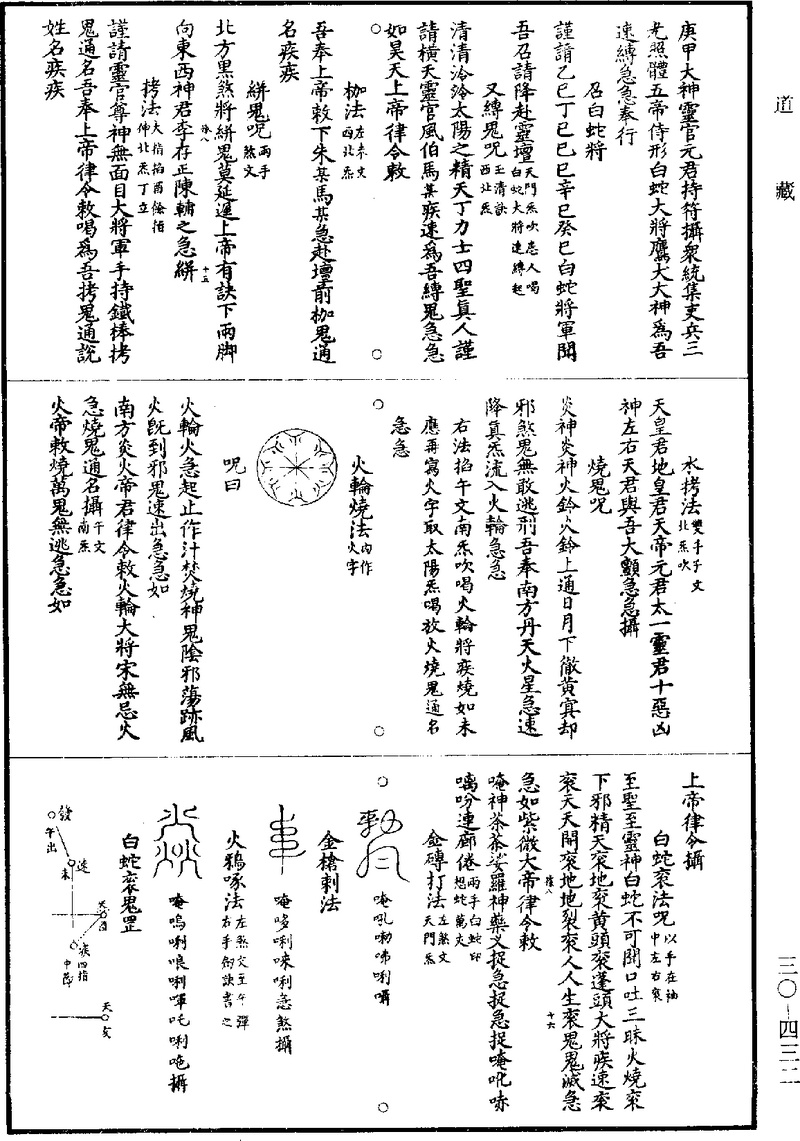 道藏
庚甲大神靈官元君持符攝衆統集吏兵三
光照體五帝侍形白蛇大將鷹犬大神爲吾
速縛急急奉行
召白蛇將
謹請乙巳丁巳己巳辛巳癸巳白蛇將軍聞
吾召請降赴靈壇天門炁吹念人喝白蛇大將速縛起
又縛鬼呪玉清訣西北炁
清清泠泠太陽之精天丁力士四聖真人謹
請橫天靈官風伯馬某疾速爲吾縛鬼急急
如昊天上帝律令敕
枷法左未文西北炁
吾奉上帝敕下朱某馬某急赴壇前枷鬼通
名疾疾
絣鬼呪兩手煞文
北方黑煞將絣鬼莫延遲上帝有訣下兩脚
向東西神君李存正陳輔之急絣
十五
拷法大指掐酉餘指伸北炁丁立
謹請靈官尊神無面目大將軍手持鐵棒拷
鬼通名吾奉上帝律令敕喝爲吾拷鬼通說
姓名疾疾
水拷法雙手子文北炁吹
天皇君地皇君天帝元君太一靈君十惡凶
神左右天君與吾大顯急急攝
燒鬼呪
炎神炎神火鈴火鈴上通日月下徹黃寘却
邪煞鬼無敢逃刑吾奉南方丹天火星急速
降真炁流入火輪急急
右法掐午文南炁吹喝火輪將疾燒如未
應再寫火字取太陽炁喝放火燒鬼通名
急急
火輪燒法內作火字
呪曰
火輪火急起止作汁焚燒神鬼陰邪蕩跡風
火旣到邪鬼速出急急如
南方炎火帝君律令敕火輪大將宋無忌火
急燒鬼通名攝午文南炁
火帝敕燒萬鬼無逃急急如
上帝律令攝
白蛇衮法呪以手在袖中左右衮
至聖至靈神白蛇不可聞口吐三昧火燒衮
下邪精天衮地衮黃頭衮蓬頭大將疾速衮
衮天天開衮地地裂衮人人生衮鬼鬼滅急
十六
急如紫微大帝律令敕
唵神茶荼娑羅神藥叉捉急捉急捉唵吪㖿
㗫吩連廊倦兩手白蛇印想蛇萬丈
金磚打法左煞文天門炁
唵吼嘞㗛唎囁
金槍刺法
唵哆唎唻唎急煞攝
火鴉啄法左煞文至午彈右手劍訣書之
唵嗚唎哏唎㖮吒唎咃攝
白蛇衮鬼罡
發
午出
未
天酉
疾四指中節
天亥
三〇—四三二